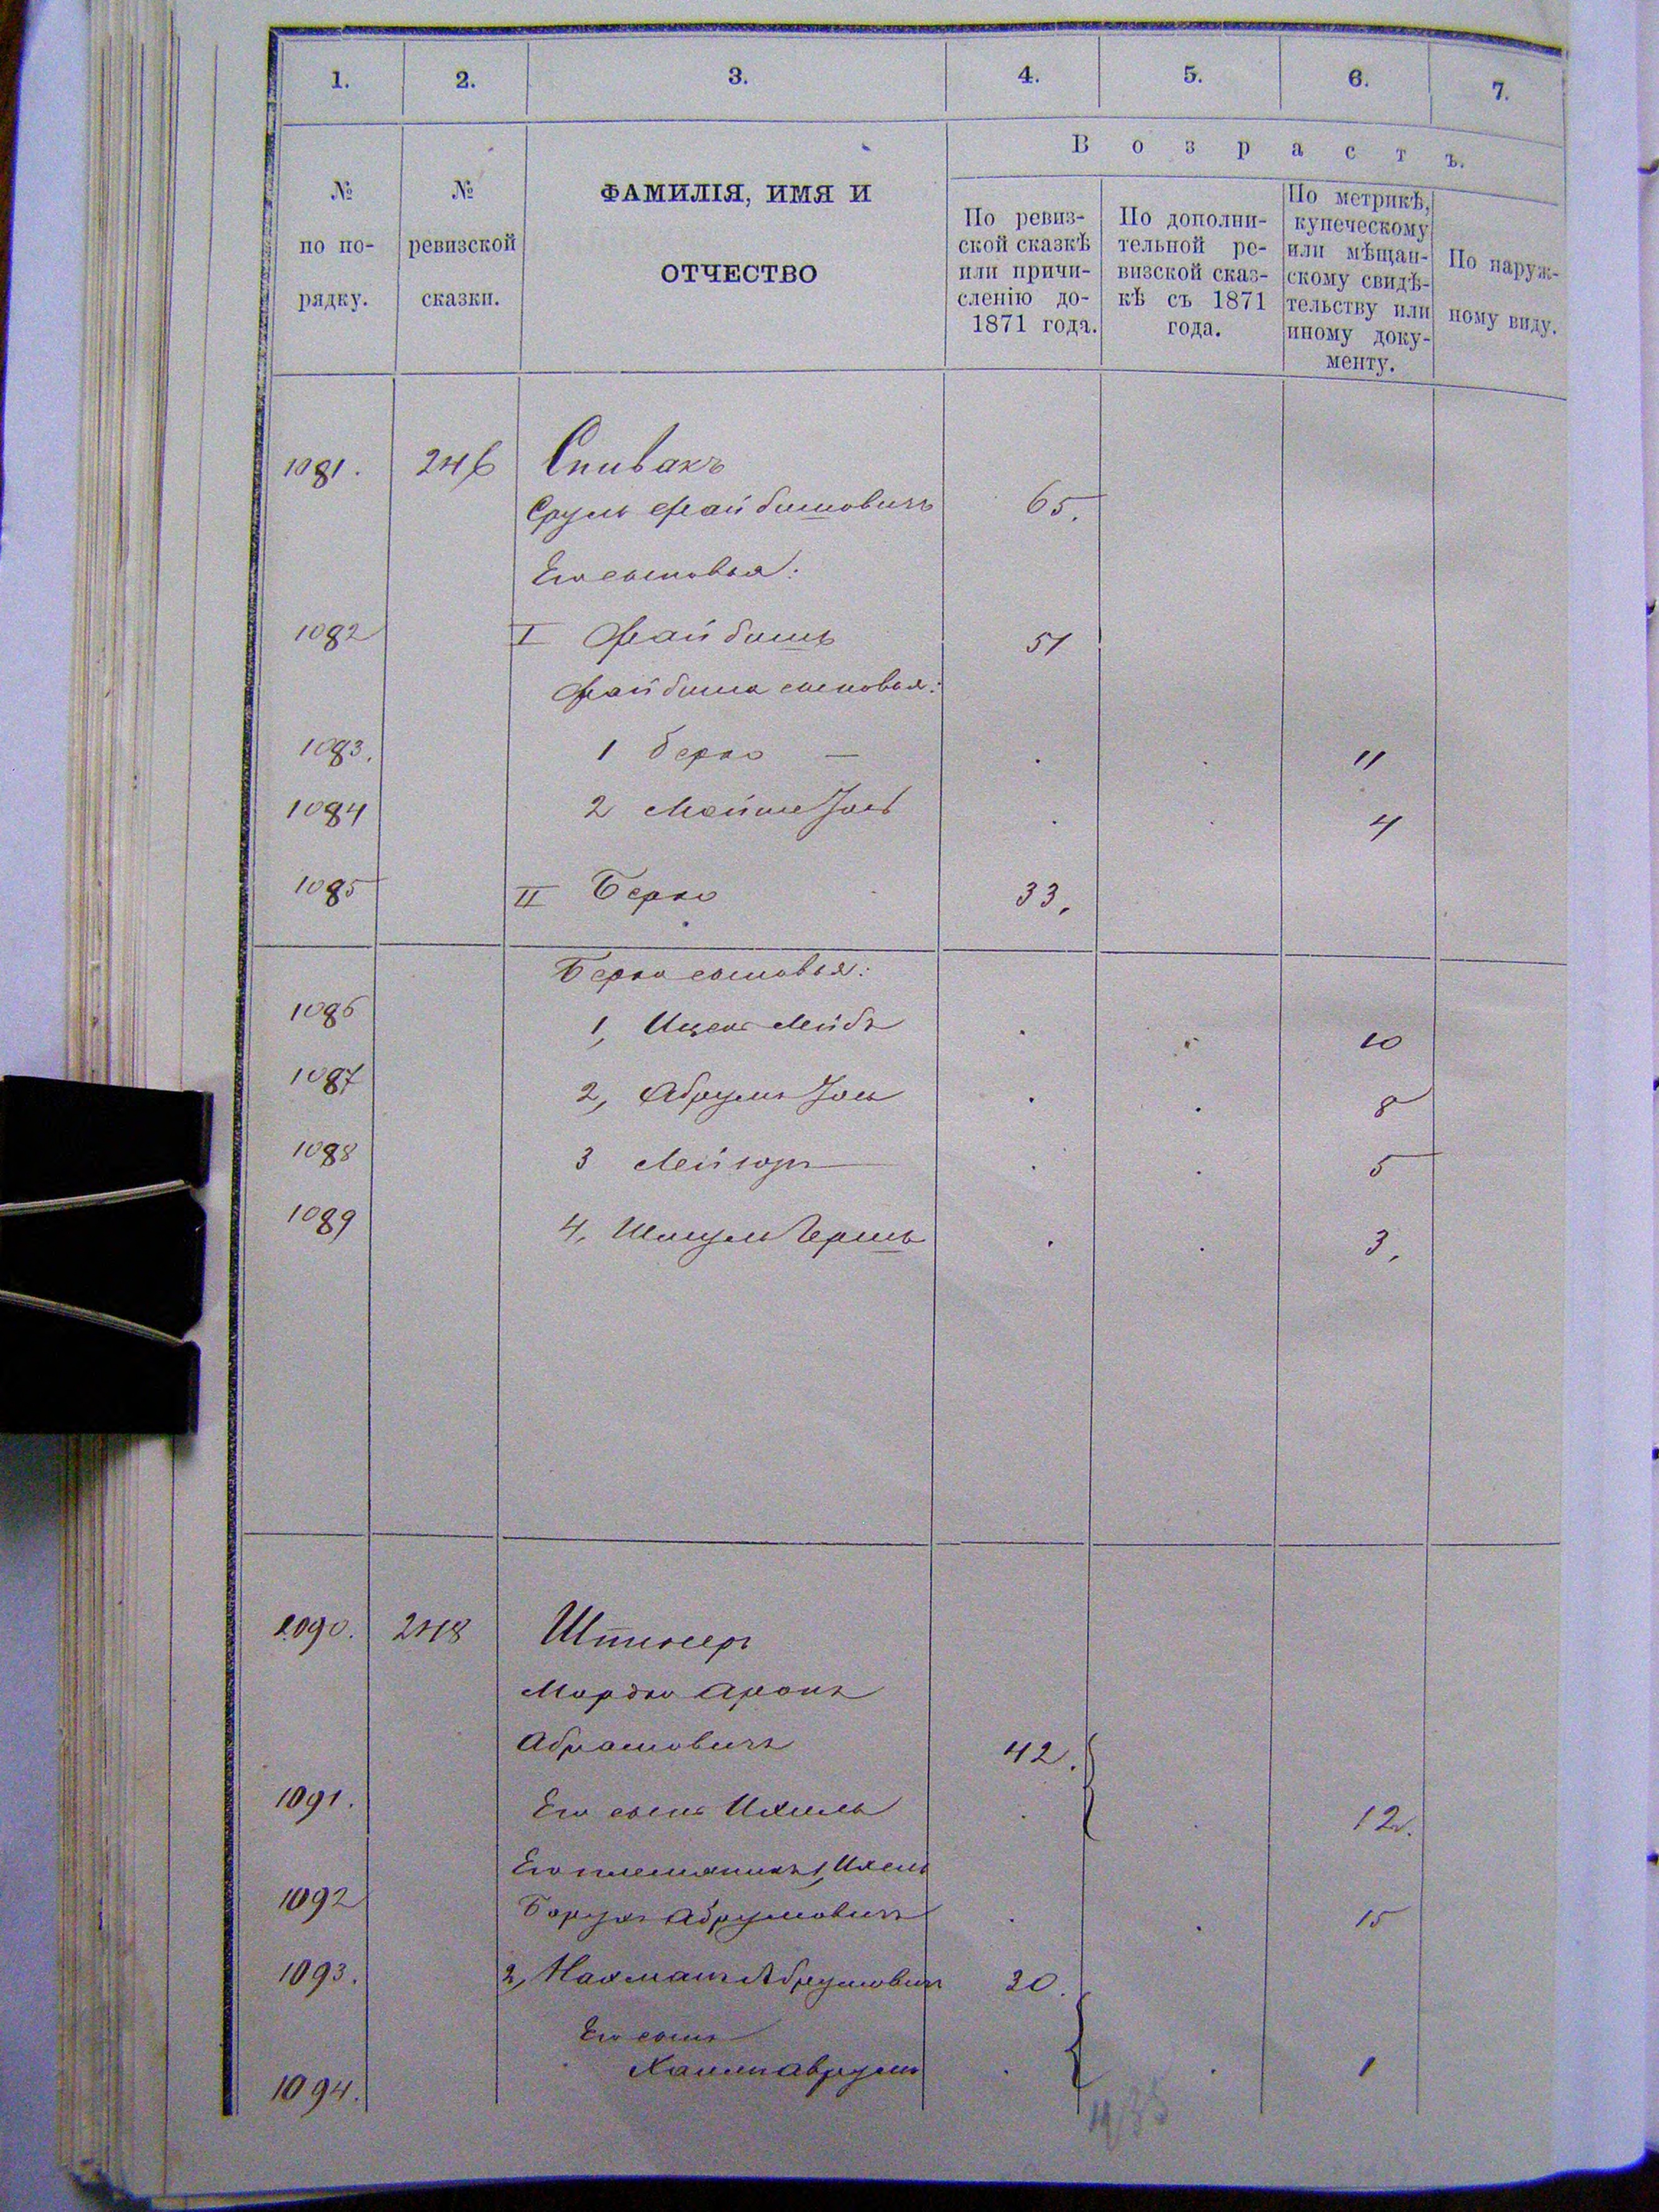 1. 2. 3. 4. 5. 6. 7.
№ по по-рядку.
№ ревизской сказки.
ФАМИЛІЯ, ИМЯ И
ОТЧЕСТВО
В о з р а с т ъ.
По ревиз-
ской сказкѣ
или причи-
сленію до-
1871 года.
По дополни-
тельной ре-
визской сказ-
кѣ съ 1871
года.
По метрикѣ,
купеческому
или мѣщан-
скому свидѣ-
тельству или
иному доку-
менту.
По наруж-
ному виду.
1081. 246 Спивакъ
Сруль Файбишовичъ 65.
Его сыновья:
1082 I Файбишъ 51
Файбиша сыновья:
1083. 1 Берко — 11
1084 2 Мойше Іось 4
1085 II Берко 33.
Берка сыновья:
1086 1, Ицекъ Лейбъ 10
1087 2, Абрумъ Іось 8
1088 3 Лейзоръ 5
1089 4, Шмуль Гершъ 3.
1090. 248
Мордко Аронъ
Абрамовичъ 42.
1091. Его сынъ Ихиль 12.
Его племяникъ 1, Ихель
1092 Борухъ Абрумовичъ 15
1093. 2, Нахманъ Абрумовичъ 30.
Его сынъ
1094. Хаимъ Аврумъ 1